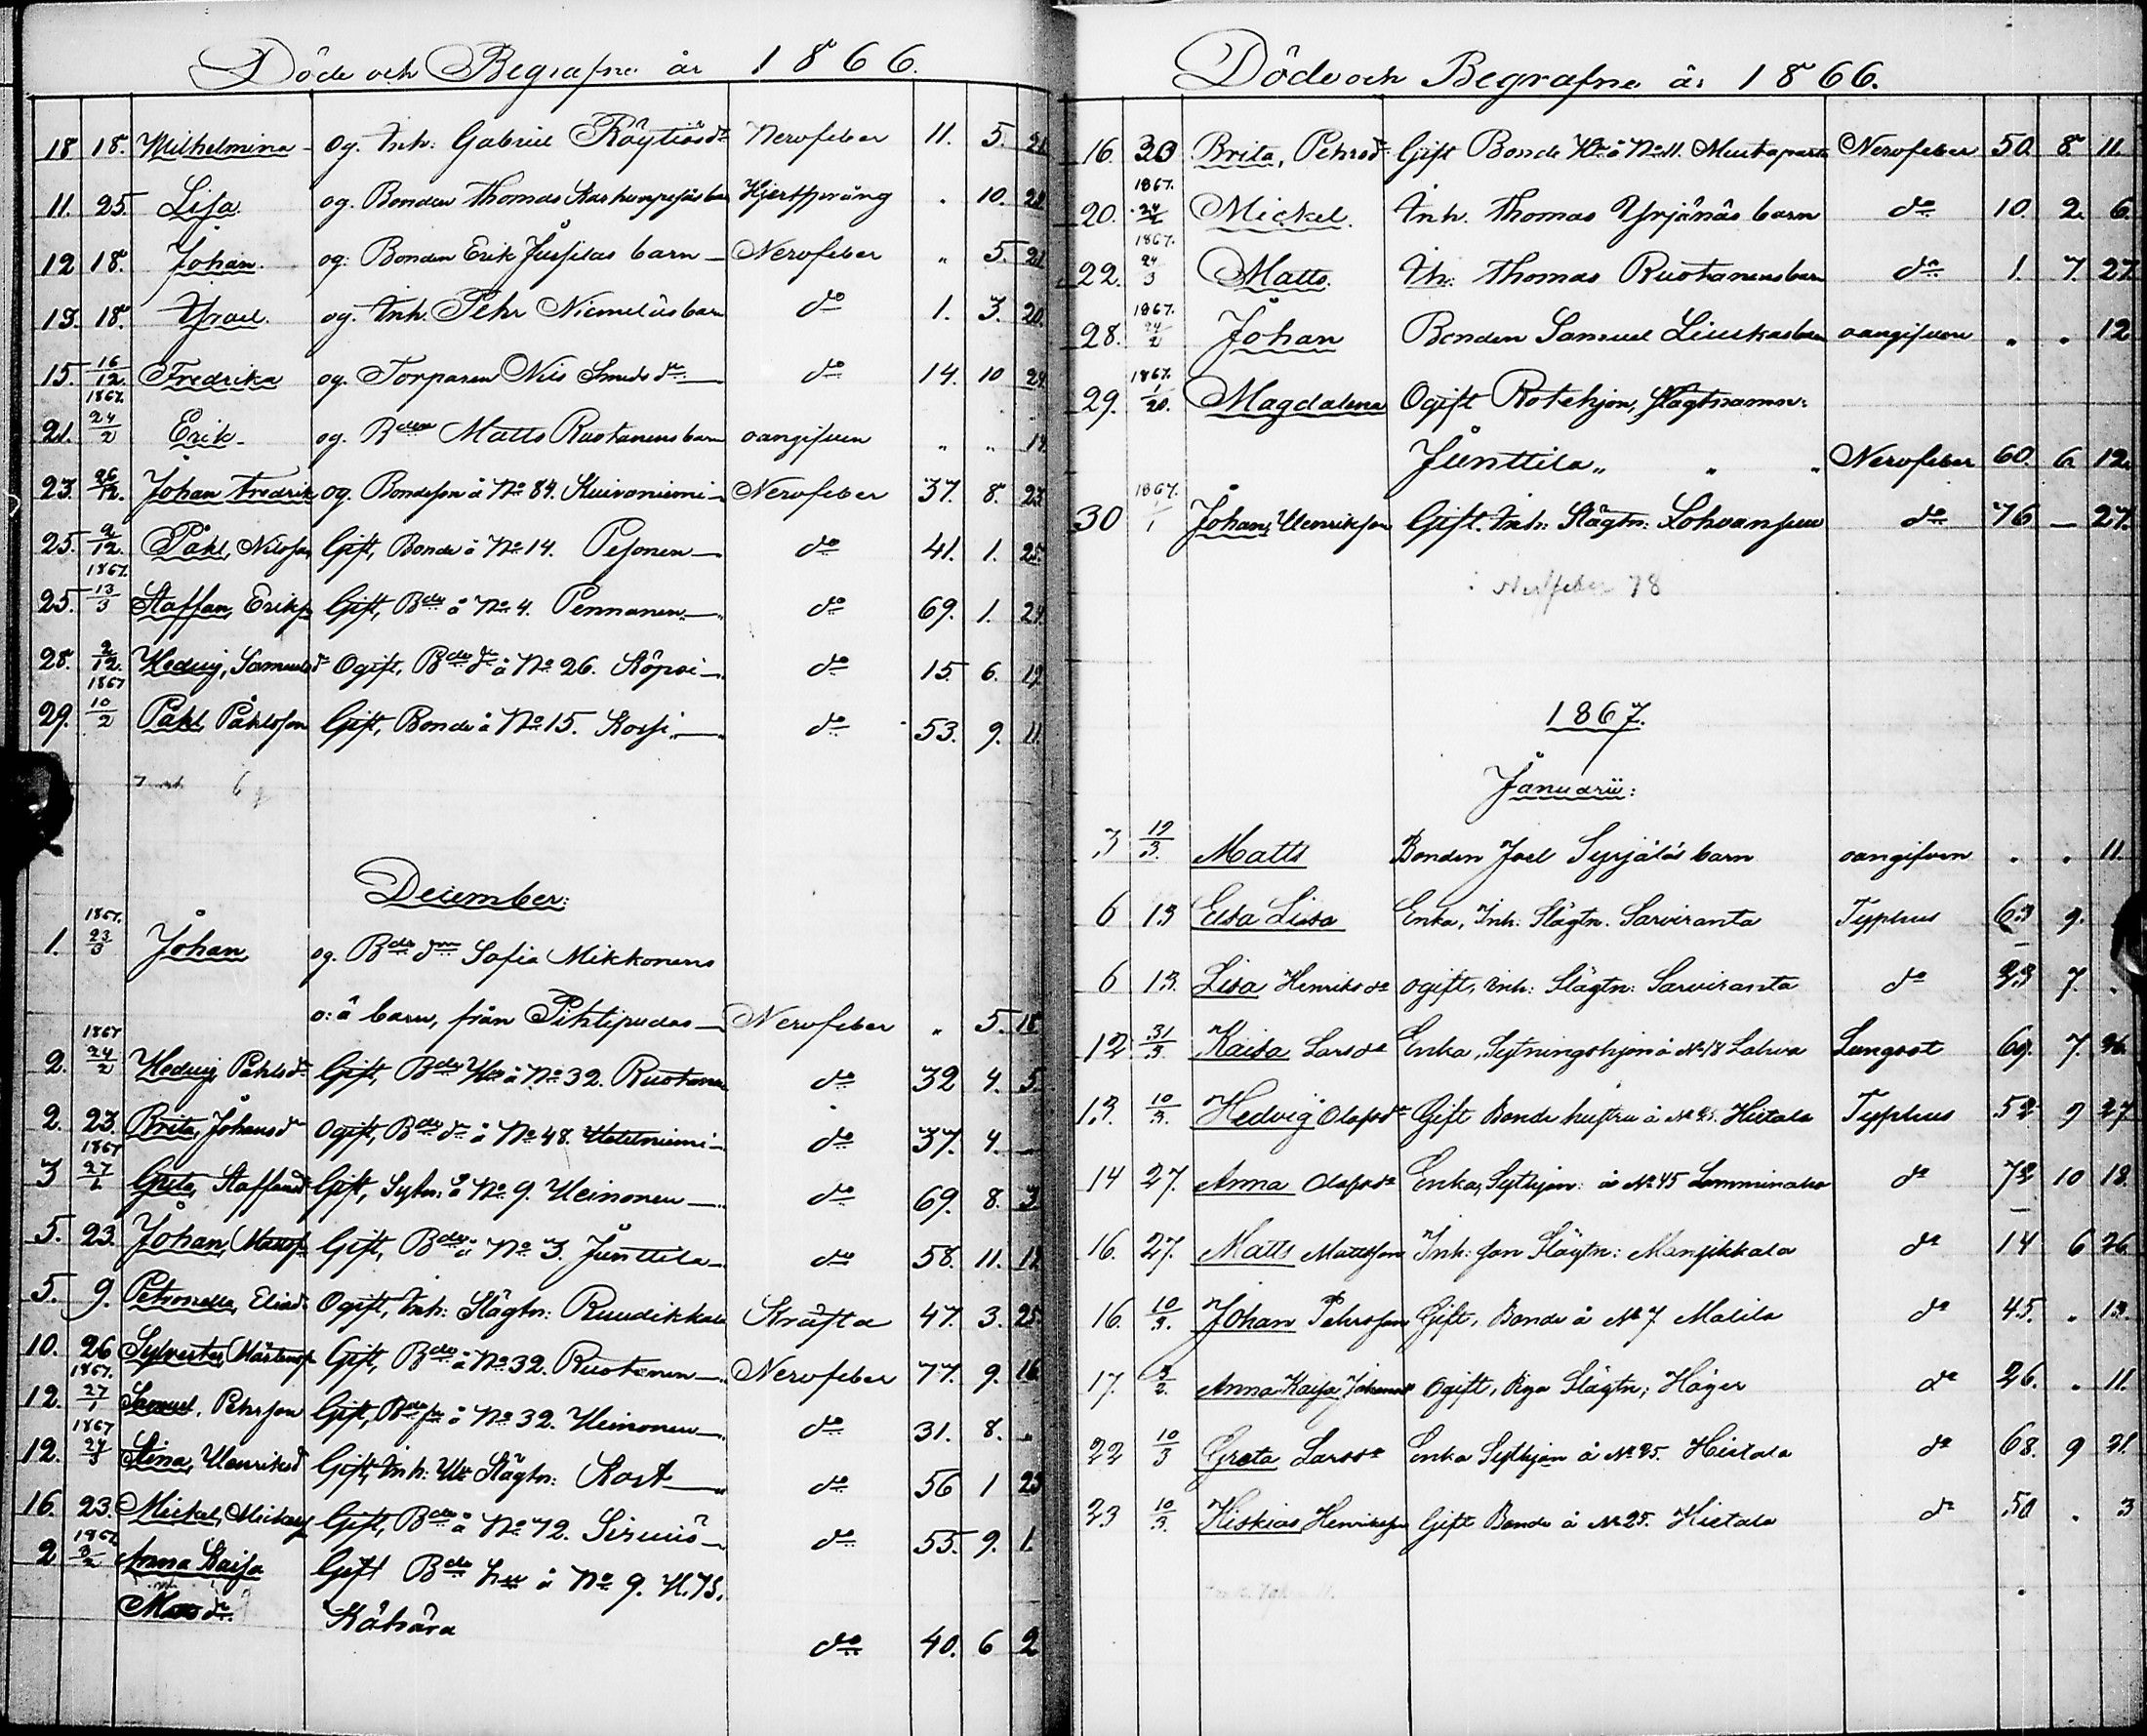 Döde och Begrafne år 1866.
18 18. Wilhelmina og. Inh: Gabriel Röytiös dr Nervfeber 11. 5. 21
11. 25. Lisa. og. Bonden Thomas barn . 10. 22
12 18. Johan. og: Bonden Erik Jussilas barn Nervfeber " 5. 21
13. 18. Israel. og. Inh. Pehr Niemeläs barn do 1. 3. 20.
15. 16/12. Fredrika og. Torparen Nils Smeds dr do 14. 10 24
1867.
21. 24/2 Erik og. Bden Matts Ruotanens barn oangifven " " 14
23. 26/12. Johan Fredrik og. Bondeson å No 84. Kuivaniemi Nervfeber 37. 8. 23
25. 9/12. Påhl, Nilsson Gift, Bonde å No 14. Pesonen do 41. 1. 25.
1867.
25. 13/3 Staffan, Eriks. Gift, Bde å No 4. Pennanen do 69. 1. 24.
28. 2/12. Hedvig, Samuelsdr Ogift, Bde dr å No 26. Köpsi do 15. 6. 19.
1867
29. 10/2 Påhl, Påhlsson Gift, Bonde å No 15. Kossi do 53. 9. 11.
December:
1867.
1. 23/3 Johan og. Bde dr Sofia Mikkonens
o: ä barn, från Pihtipudas Nervfeber " 5. 18
1867
2. 24/2 Hedvig Påhlsdr Gift, Bde Hu å No 32. Ruotanen do 32 4. 5.
2. 23. Brita, Johansdr Ogift, Bde dr å No 48. do 37. 4.
1867
3 27/1 Greta, Staffansd Gift, Sytn: å No 9. Heinonen do 69. 8. 3
5. 23. Johan, Mattss. Gift, Bde å No 3. Junttila do 58. 11. 12
5. 9. Petronella, Eliasd. Ogift, Inh: Slägtn: Ruudikkala Kräfta 47. 3. 25.
10. 26 Sylvester, Mårtenss. Gift, Bde å No 32. Ruotanen Nervfeber 77. 9. 16
1867.
12. 27/1 Samuel, Pehrson Gift, Bde sn å No 32. Heinonen do 31. 8. "
1867
12. 27/3 Stina, Henriksd Gift, Inh: Hu Slägtn: Kost do 56 1 23
16. 23. Mickel, Mickelss. Gift, Bde å No 72. Sirniö do 55. 9. 1.
1867
2 3/2 Anna Kaisa Gift Bde hu å No 9. H.75.
Matts dr. Kähärä do 40. 6 2
Döde och Begrafne år 1866.
16. 23 Brita, Pehrsdr Gift Bonde Hu å No 11. Mustaparta Nervfeber 50. 8. 11.
1867.
20. Mickel. Inh. Thomas Yrjänäs barn do 10. 2. 6.
1867.
22. 24/3 Matts. Ih: Thomas Ruotanens barn do 1. 7. 27
1867.
28. 24/2 Johan Bonden Samuel Liuskas barn oangifven " " 12
1867.
29. 1/20. Magdalena Ogift Rotehjon, Slägtnamn:
Junttila " " " Nervfeber 60. 6. 12.
1867.
30 1/1 Johan, Henrikson Gift. Inh: Slägtn: Lohvansuu do 76 — 27.
Nerffeber 78
1867.
Januarii:
3 19/3. Matts Bonden Joel Syrjäläs barn oangifven " " 11.
6 13 Elsa Liisa Enka, Inh: Slägtn. Sarviranta Typhus 63 9.
6 13. Lisa Henriksdr ogift, Inh: Slägtn: Sarviranta do 23 7. .
12 31/3. Kaisa Larsdr Enka, Sytningshjon å No 18 Lahwa Lungsot 69. 7. 26.
13. 10/3. Hedvig Olofsdr Gift Bonde hustru å No 25. Hietala Typhus 52 9 27
14 27. Anna Olofsdr Enka, Sythjon: å No 45 Lamminaho do 72 10 18.
16. 27. Matts Mattsson Inh: son Slägtn: Mansikkala do 14 6 26
16. 10/3. Johan Pehrsson Gift, Bonde å No 7 Malila do 45. " 13.
17. 2/2. Anna Kaisa Johansdr Ogift, Piga Slägtn; Häger do 26. " 11.
22 10/3 Greta Larsdr Enka Sythjon å No 25. Hietala do 68. 9 21.
23 10/3. Hiskias Henriksson Gift Bonde å No 25. Hietala do 50 . 3